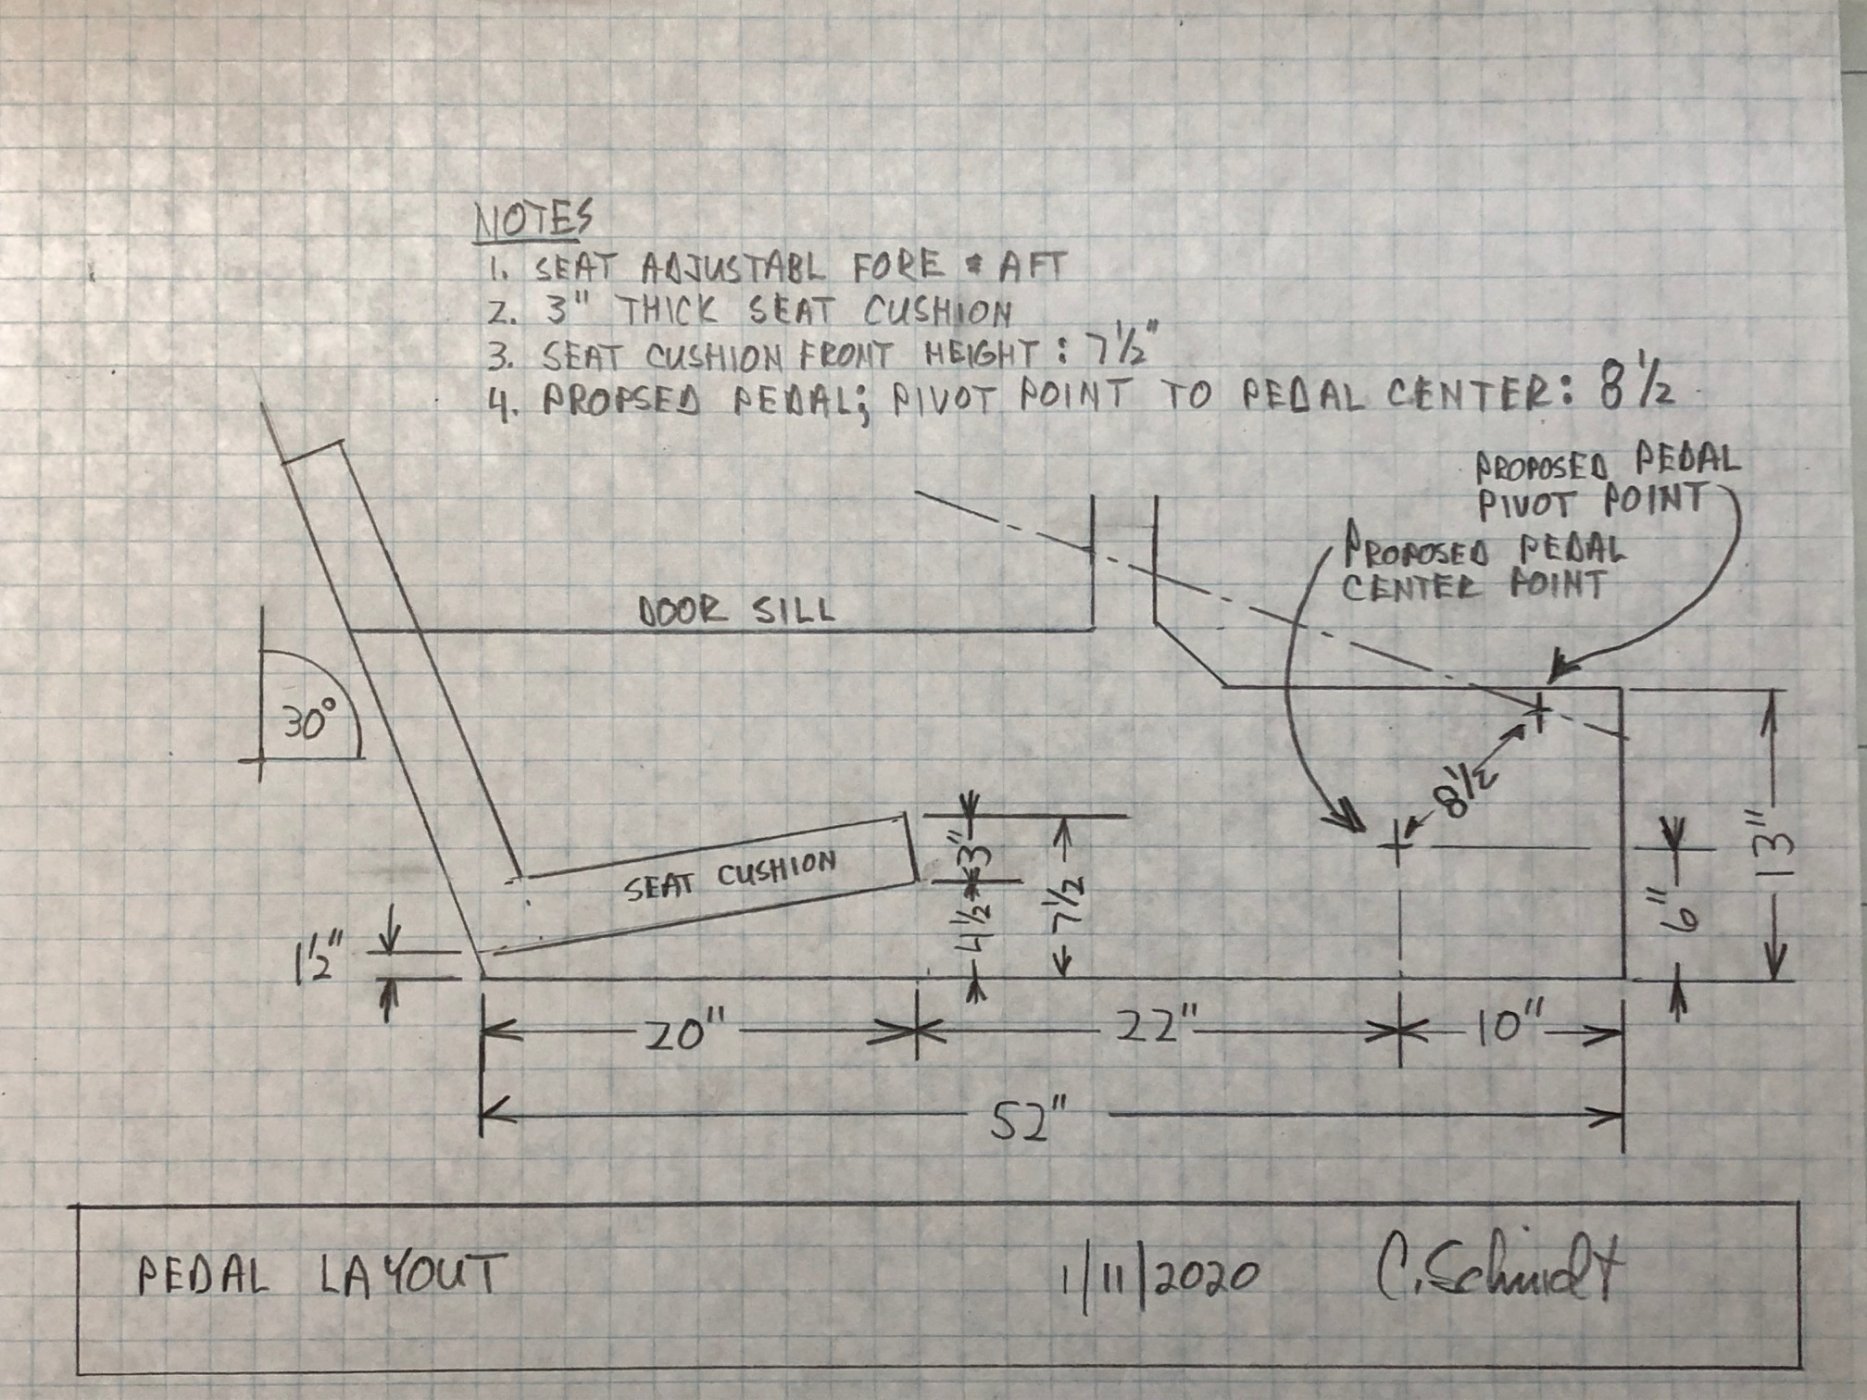 NOTES
1. SEAT ADJUSTABL FORE & AFT
2. 3" THICK SEAT CUSHION
3. SEAT CUSHION FRONT HEIGHT: 7 1/2"
4. PROPSED PEDAL; PIVOT POINT TO PEDAL CENTER: 8 1/2
PROPOSED PEDAL
PIVOT POINT
PROPOSED PEDAL
CENTER POINT
DOOR SILL
30°
8 1/2
SEAT CUSHION
3"
4 1/2
7 1/2
13"
6"
1 1/2"
20"
22"
10"
52"
PEDAL LAYOUT
1/11/2020
C. Schmidt